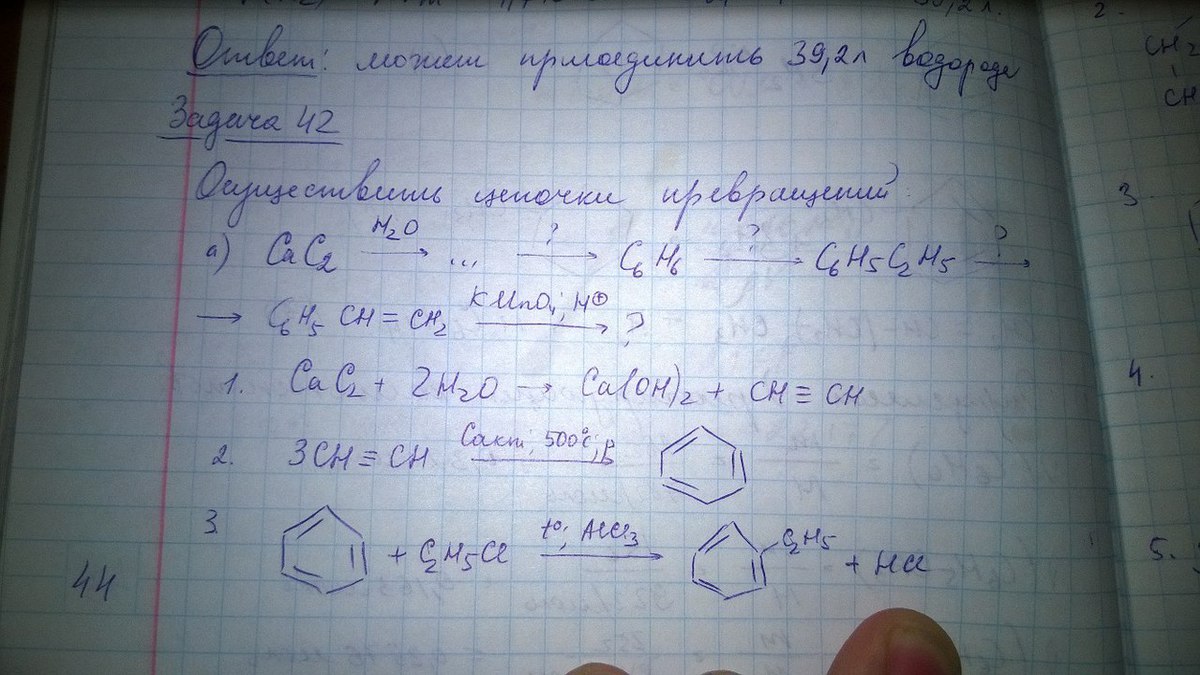 Ответ: может присоединить 39,2л водорода
Задача 42
Осуществить цепочки превращений:
а) CaC2 H2O → ... ? → C6H6 ? → C6H5C2H5 ? →
→ C6H5 CH=CH2 KMnO4; H⊕ → ?
1. CaC2 + 2H2O → Ca(OH)2 + CH≡CH
2. 3CH≡CH Cакт; 500°C; p →
3. + C2H5Cl t°; AlCl3 → C2H5 + HCl
44
2.
CH2
CH
3.
4.
5.